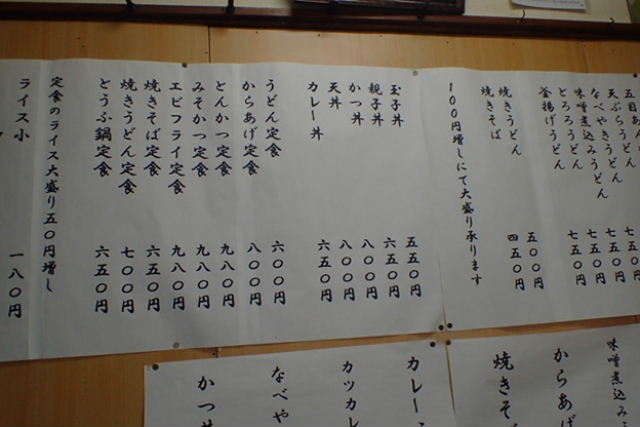 五目あ
天ぷらうどん
なべやきうどん 七五〇円
味噌煮込みうどん 七五〇円
とろろうどん 七五〇円
釜揚げうどん 七五〇円
焼きうどん 五〇〇円
焼きそば 四五〇円
１００円増しにて大盛り承ります
玉子丼 五五〇円
親子丼 六五〇円
かつ丼 八〇〇円
天丼 八〇〇円
カレー丼 六五〇円
うどん定食 六〇〇円
からあげ定食 八〇〇円
とんかつ定食 九八〇円
みそかつ定食 九八〇円
エビフライ定食 九八〇円
焼きそば定食 六五〇円
焼きうどん定食 七〇〇円
とうふ鍋定食 六五〇円
定食のライス大盛り五〇円増し
ライス小 一八〇円
味噌煮込み
からあげ
焼きそ
カレー
カツカレ
なべや
かつ